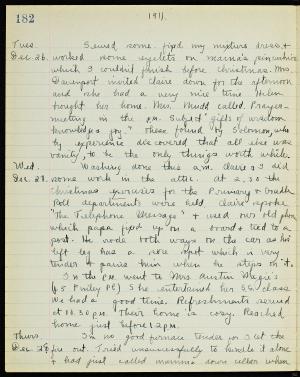 182
1911.
Tues. Sewed some. fixed my mixture dress &
Dec. 26. worked some eyelets on mama's
which I couldn't finish before Christmas. Mrs.
Davenport invited Claire down for the afternoon
and she had a very nice time Helen
brought her home. Mrs. Mudd called. Prayer-
meeting in the P.M. Subject "gifts of wisdom
knowledge & joy." These found by Solomon, who
by experience discovered that all else was
vanity, to be the only things worth while.
Wed. Washing done this a.m. Claire & I did
Dec. 27. some work in the attic. at 2:30 the
Christmas exercises for the Primary & Cradle
Roll departments were held. Claire spoke
"The Telephone Message" & used our old phone
which papa fixed up on a board & tied to a
post. He rode both ways on the car as his
left leg has a sore spot which is very
tender & pains him when he steps on it.
In the P.M. went to Mrs. Austin
(95 Pl) She entertained her S.S. class
We had a good time. Refreshments served
at 10.30 P.M. Their home is cosy. Reached
home just before 12 P.M.
Thurs. I'm no good furnace tender for I let the
Dec. 28. fire out. Tried unsuccessfully to handle it alone
& had just called mama down cellar when